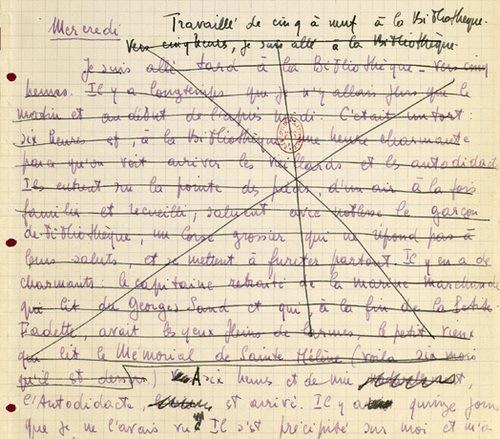 Mercredi
Travaillé de cinq à neuf à la Bibliothèque.
Vers cinq heures, je suis allé à la Bibliothèque.
Je suis allé tard à la Bibliothèque - vers cinq
heures. Il y a longtemps que je n'y allais plus que le
matin et au début de l'après midi. C'était un tort:
six heures est, à la Bibliothèque une heure charmante
parce qu'on voit arriver les vieillards et les autodidac
Ils entrent sur la pointe des pieds, d'un air à la fois
familier et recueilli, saluent avec noblesse le garçon
de Bibliothèque, un Corse grossier qui ne répond pas à
leurs saluts, et se mettent à fureter partout. Il y en a de
charmants: le capitaine retraité de la marine marchande
qui lit du Georges Sand et qui, à la fin de la Petite
Fadette, avait les yeux pleins de larmes, le petit vieux
qui lit le Mémorial de Sainte Hélène (voilà six mois
qu'il est dessus.) A six heures et demie
l'Autodidacte, est arrivé. Il y a quinze jours
que je ne l'avais vu. Il s'est précipité sur moi et m'a